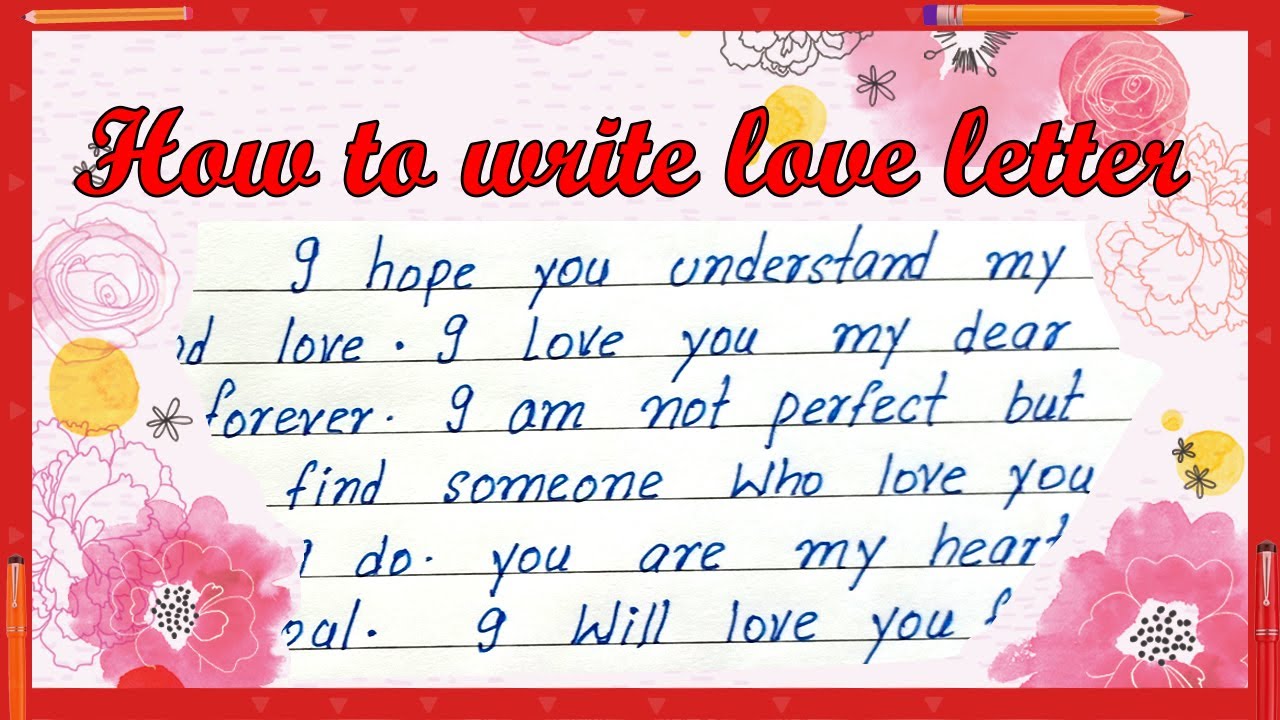 How to write love letter
I hope you understand my
love. I love you my dear
forever. I am not perfect but
find someone who love you
I do. you are my heart
I will love you